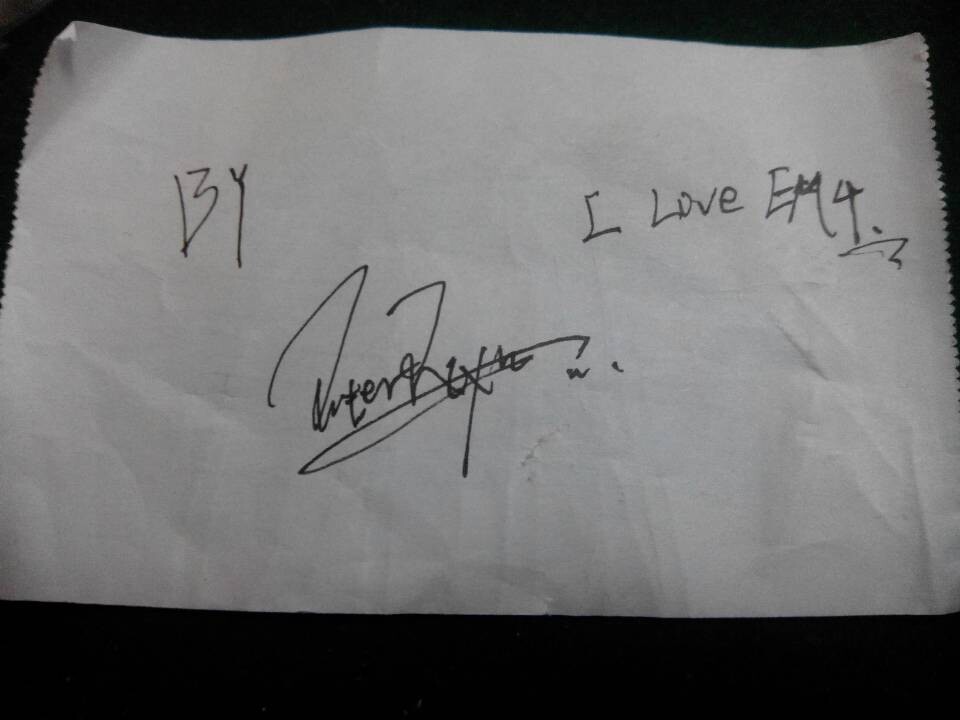 BY
I Love EM4.